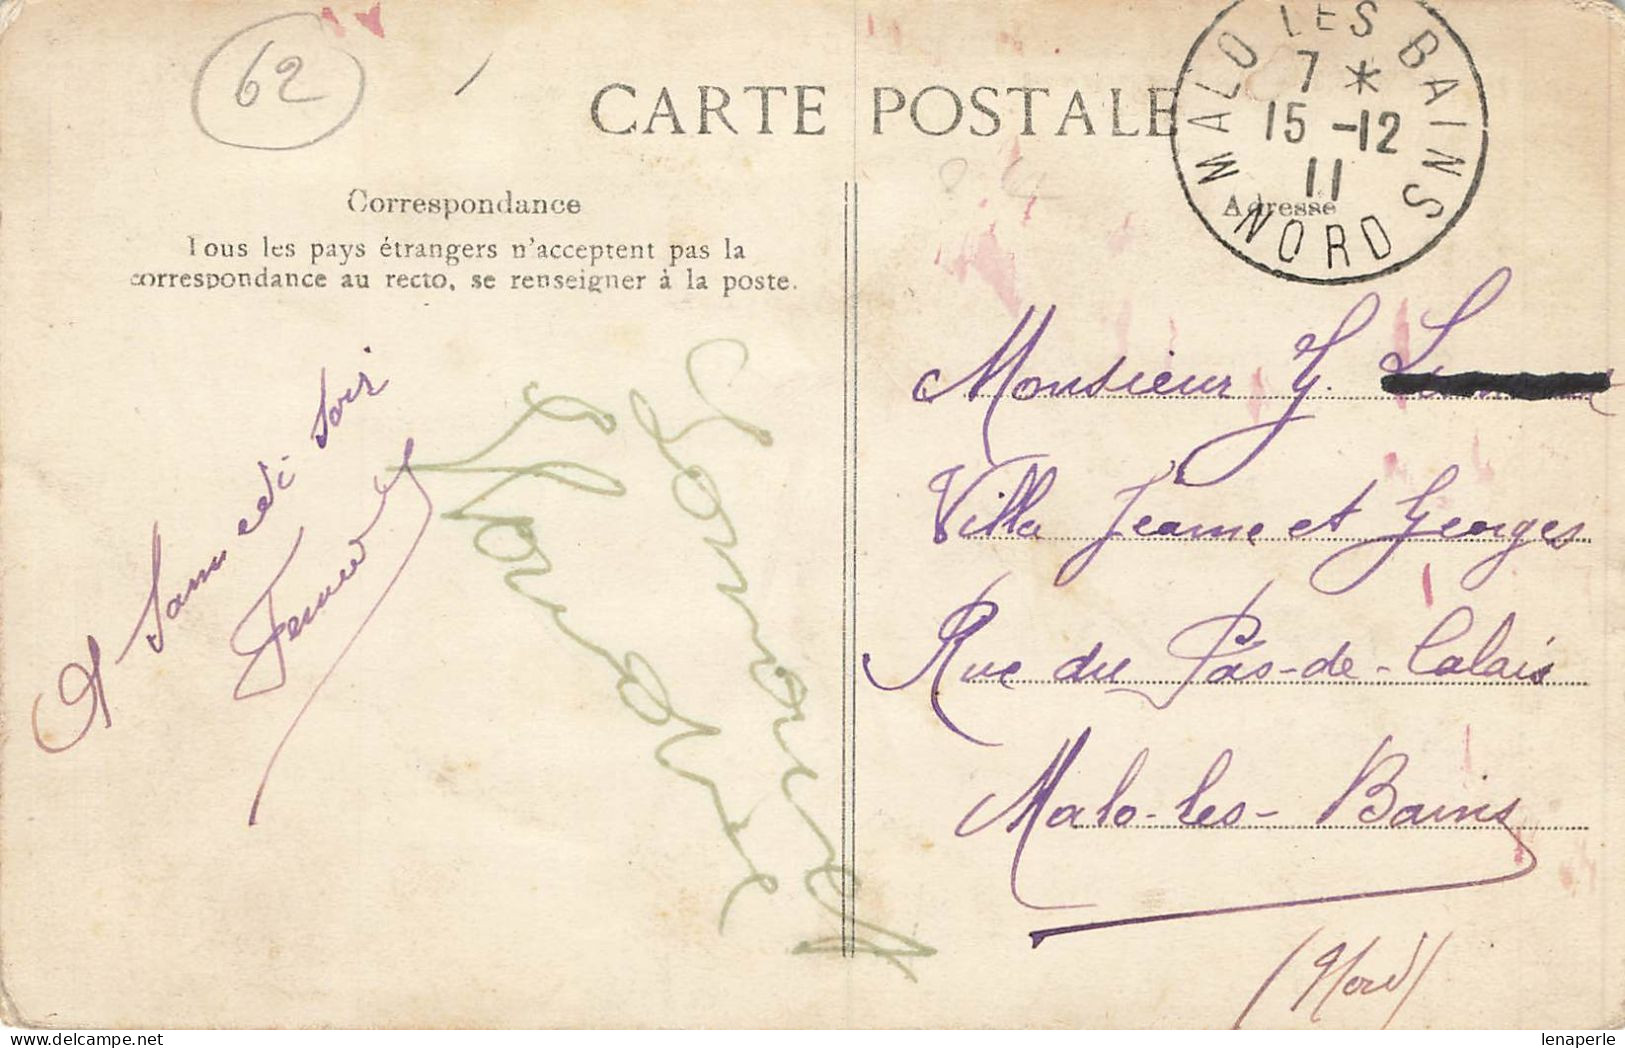 62
CARTE POSTALE
MALO LES BAINS
7 *
15 -12
11
NORD
Correspondance
Tous les pays étrangers n'acceptent pas la
correspondance au recto, se renseigner à la poste.
Adresse
A Samedi soir
Monsieur G.
Villa Jeanne et Georges
Rue du Pas-de-Calais
Malo-les-Bains
(Nord)
lenaperle